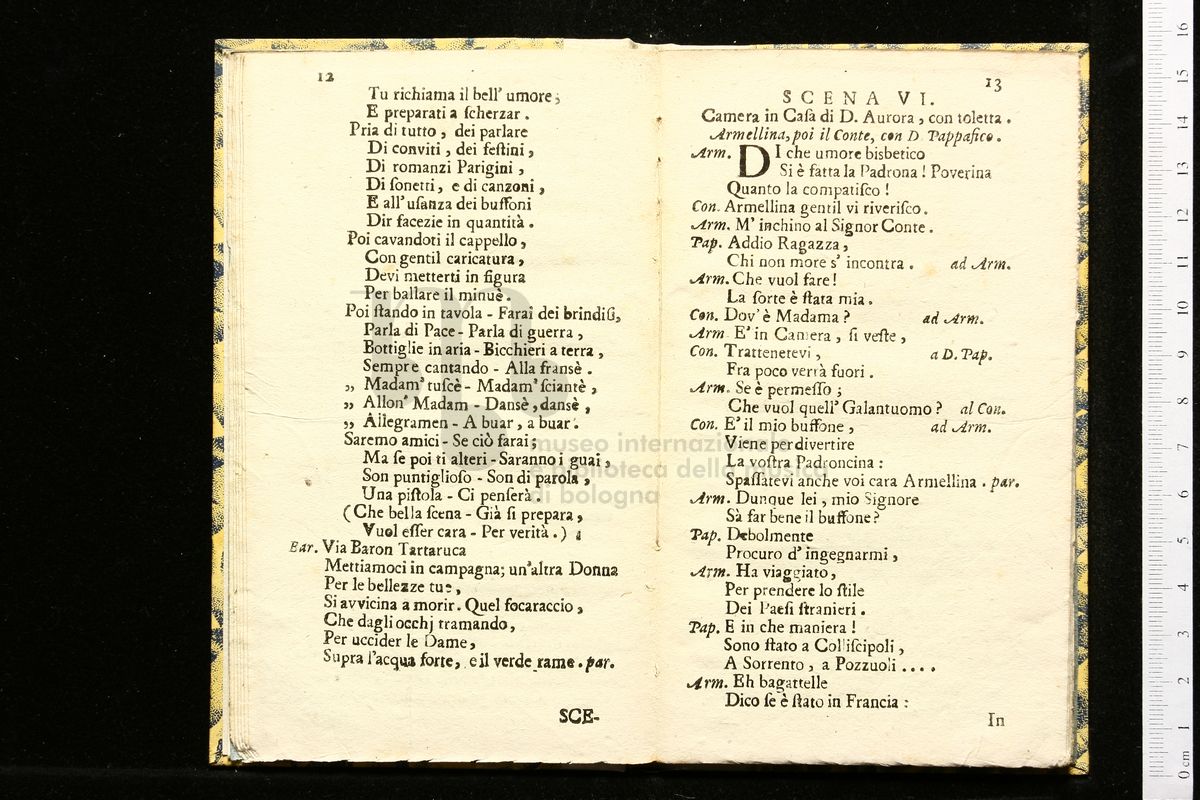 12
Tu richiama il bell' umore;
E preparati a ſcherzar.
Pria di tutto, dei parlare
Di conviti, dei feſtini,
Di romanzi Parigini,
Di ſonetti, e di canzoni,
E all' uſanza dei buffoni
Dir facezie in quantità.
Poi cavandoti il cappello,
Con gentil caricatura,
Devi metterti in figura
Per ballare il minuè.
Poi ſtando in tavola - Farai dei brindiſi,
Parla di Pace - Parla di guerra,
Bottiglie in aria - Bicchieri a terra,
Sempre cantando - Alla fransè.
„ Madam' tuſcè - Madam' ſciantè,
„ Allon' Madam - Dansè, dansè,
„ Allegramen - A buar, a buar.
Saremo amici - Se ciò farai;
Ma ſe poi ti alteri - Saranno i guai,
Son puntiglioſo - Son di parola,
Una piſtola - Ci penſerà.
(Che bella ſcena - Già ſi prepara,
Vuol eſſer cara - Per verità.)
Bar. Via Baron Tartaruca
Mettiamoci in campagna; un'altra Donna
Per le bellezze tue,
Si avvicina a morir. Quel focaraccio,
Che dagli occhj tramando,
Per uccider le Dame,
Supra l'acqua forte, e il verde rame. par.
SCE-
13
SCENA VI.
Camera in Caſa di D. Aurora, con toletta.
Armellina, poi il Conte, con D. Pappafico.
Arm. DI che umore bisbetico
Si è fatta la Padrona! Poverina
Quanto la compatiſco!
Con. Armellina gentil vi riveriſco.
Arm. M' inchino al Signor Conte.
Pap. Addio Ragazza,
Chi non more s' incontra. ad Arm.
Arm. Che vuol fare!
La ſorte è ſtata mia.
Con. Dov' è Madama? ad Arm.
Arm. E' in Camera, ſi veſte,
Con. Trattenetevi, a D. Pap.
Fra poco verrà fuori.
Arm. Se è permeſſo;
Che vuol quell' Galantuomo? al Con.
Con. E' il mio buffone, ad Arm.
Viene per divertire
La voſtra Padroncina:
Spaſſatevi anche voi cara Armellina. par.
Arm. Dunque lei, mio Signore
Sà far bene il buffone?
Pap. Debolmente
Procuro d' ingegnarmi,
Arm. Ha viaggiato,
Per prendere lo ſtile
Dei Paeſi ſtranieri.
Pap. E in che maniera!
Sono ſtato a Colliſcipoli,
A Sorrento, a Pozzuoli....
Arm. Eh bagattelle
Dico ſe è ſtato in Francia:
In
museo internazionale
e biblioteca della musica
di bologna
0 cm 1 2 3 4 5 6 7 8 9 10 11 12 13 14 15 16